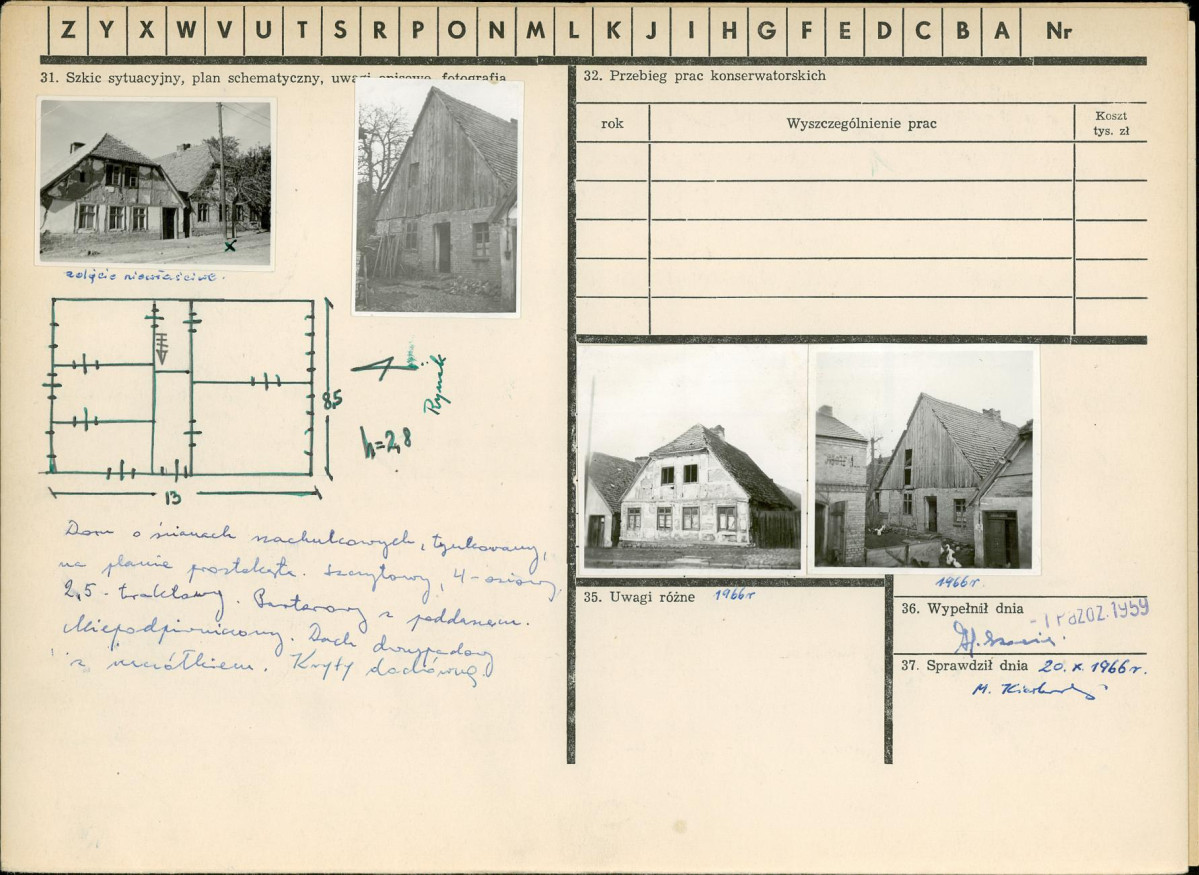 Z Y X W V U T S R P O N M L K J I H G F E D C B A Nr
31. Szkic sytuacyjny, plan schematyczny, uwagi opisowe, fotografia
zdjęcie niewłaściwe.
Rynek
8,5
h=2,8
13
Dom o ścianach szachulcowych, tynkowany,
na planie prostokąta. Szczytowy, 4-osiowy,
2,5-traktowy. Parterowy z poddaszem.
Niepodpiwniczony. Dach dwuspadowy
z naczółkiem. Kryty dachówką.
32. Przebieg prac konserwatorskich
rok
Wyszczególnienie prac
Koszt
tys. zł
1966r.
35. Uwagi różne 1966r
36. Wypełnił dnia -1 PAŹDZ. 1959
37. Sprawdził dnia 20. X. 1966r.
M.